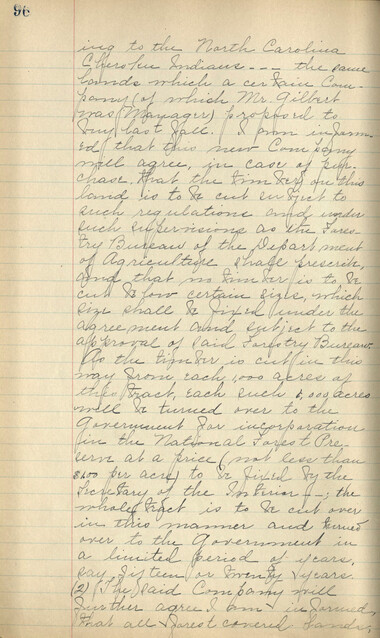 96
ing to the North Carolina
Cherokee Indians --- the same
lands which a certain Com-
pany (of which Mr. Gilbert
was Manager) proposed to
buy last fall. I am inform-
ed that this new Company
will agree, in case of pur-
chase, that the timber on this
land is to be cut subject to
such regulations and under
such supervisions as the Fores-
try Bureau of the Department
of Agriculture shall prescribe,
and that no timber is to be
cut below certain sizes, which
size shall be fixed under the
agreement and subject to the
approval of said Forestry Bureau.
As the timber is cut in this
way from each 1,000 acres of
the tract, each such 1,000 acres
will be turned over to the
Government for incorporation
in the National Forest Pre-
serve at a price (not less than
per acre) to be fixed by the
Secretary of the Interior --; the
whole tract is to be cut over
in this manner and turned
over to the Government in
a limited period of years,
say fifteen or twenty years.
(2) (The) said Company will
further agree I am informed
that all forest covered lands,